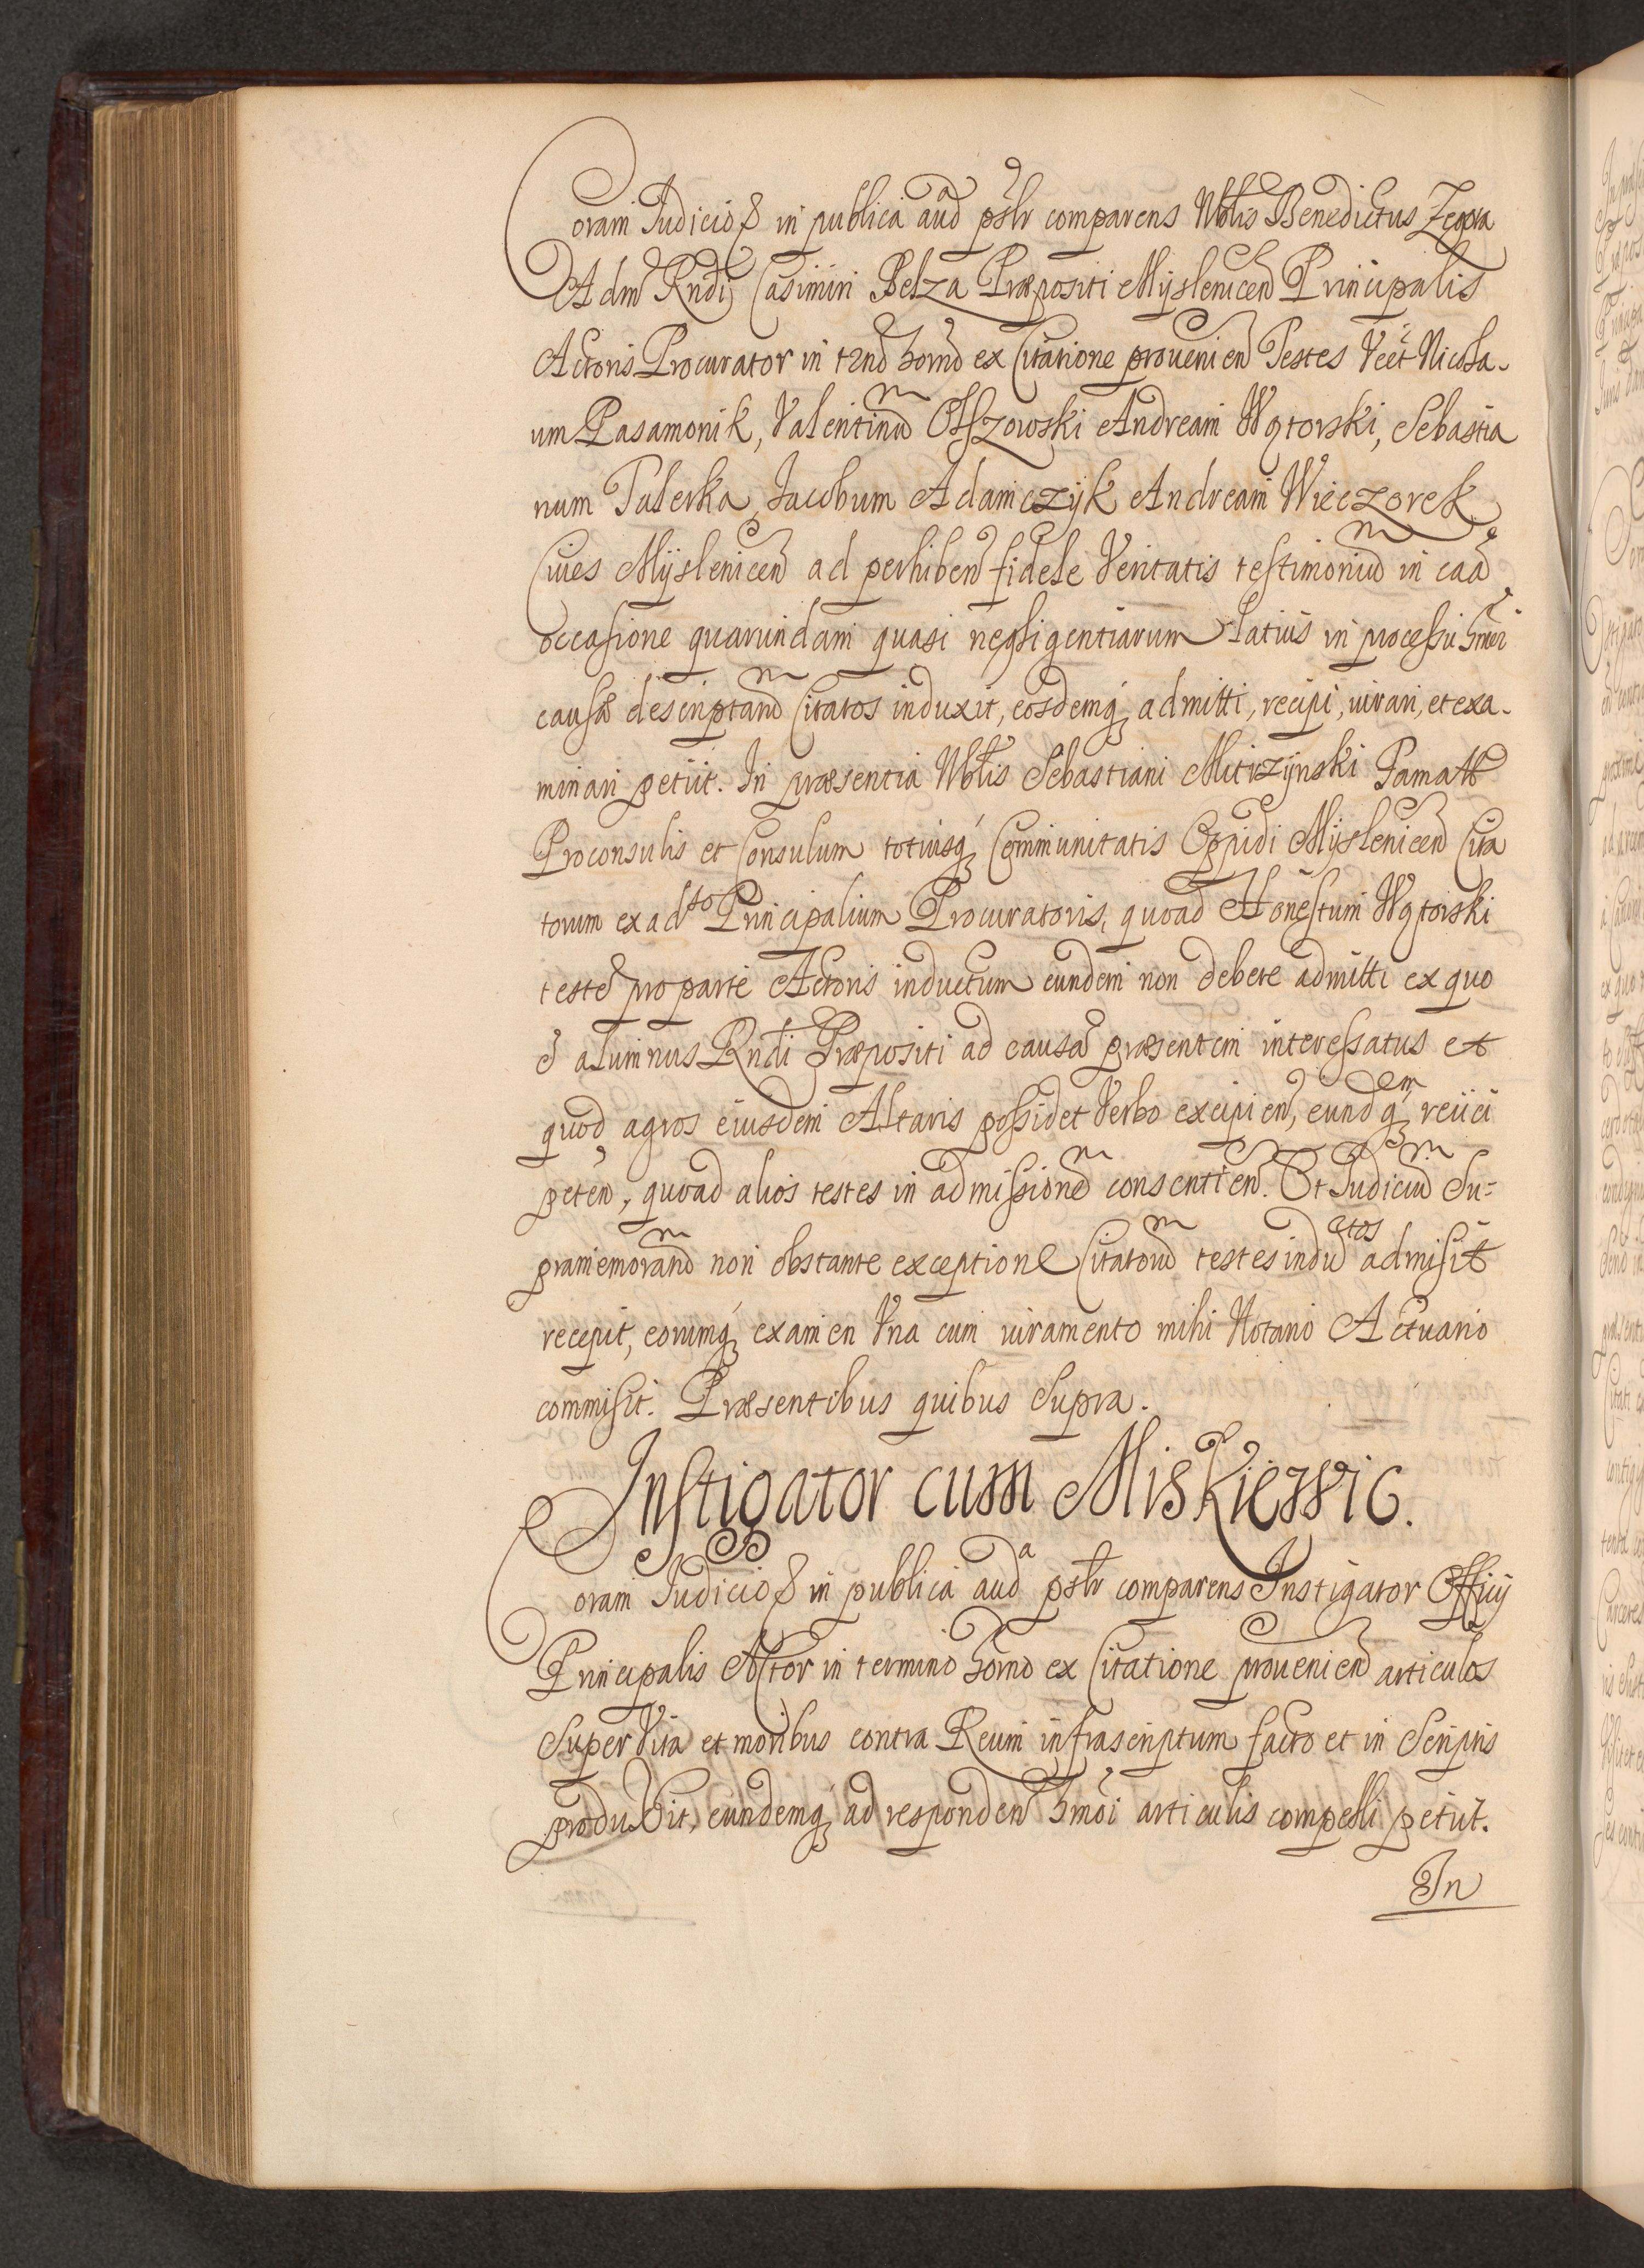 Coram Judicio & in publica auda pslr comparens Nblis Benedictus Zepra
Adm Rndi Casimiri Belza Præpositi Myslenicen Principalis
Actoris Procurator in trno horno ex Citatione prouenien Testes Vcet Nicola-
um Pasamonik, Valentinum Olszowski Andream Wątorski, Sebastia
num Talerka, Jacobum Adamczyk Andream Wieczorek
Ciues Myslenicen ad perhiben fidele Veritatis testimonium in caa
occasione quarundam quasi negligentiarum latius in processu hmoi
causæ descriptarum Citatos induxit, eosdemq admitti, recipi, iurari, et exa-
minari petiit. In præsentia Nblis Sebastiani Miticzynski Famatt
Proconsulis et Consulum totiusq Communitatis Oppidi Myslenicen Cita
torum ex adto Principalium Procuratoris, quoad Honestum Wątorski
teste pro parte Actoris inductum eundem non debere admitti ex quo
e alumnus Rndi Præpositi ad causa præsentem interessatus et
quod agros eiusdem Altaris possidet Verbo excipien, eundemq reiici
peten, quoad alios testes in admissionem consentien. Et Judicium Su=
pramemorandum non obstante exceptione Citatorum testes inductos admisit
recepit, eorumq examen Vna cum iuramento mihi Notario Actuario
commisit. Præsentibus quibus Supra.
Instigator cum Miskiewic.
Coram Judicio & in publica auda pslr comparens Instigator Officij
Principalis Actor in termino horno ex Citatione prouenien articulos
Super Vita et moribus contra Reum infrascriptum facto et in Scriptis
produxit, eundemq ad responden hmoi articulis compelli petiit.
In